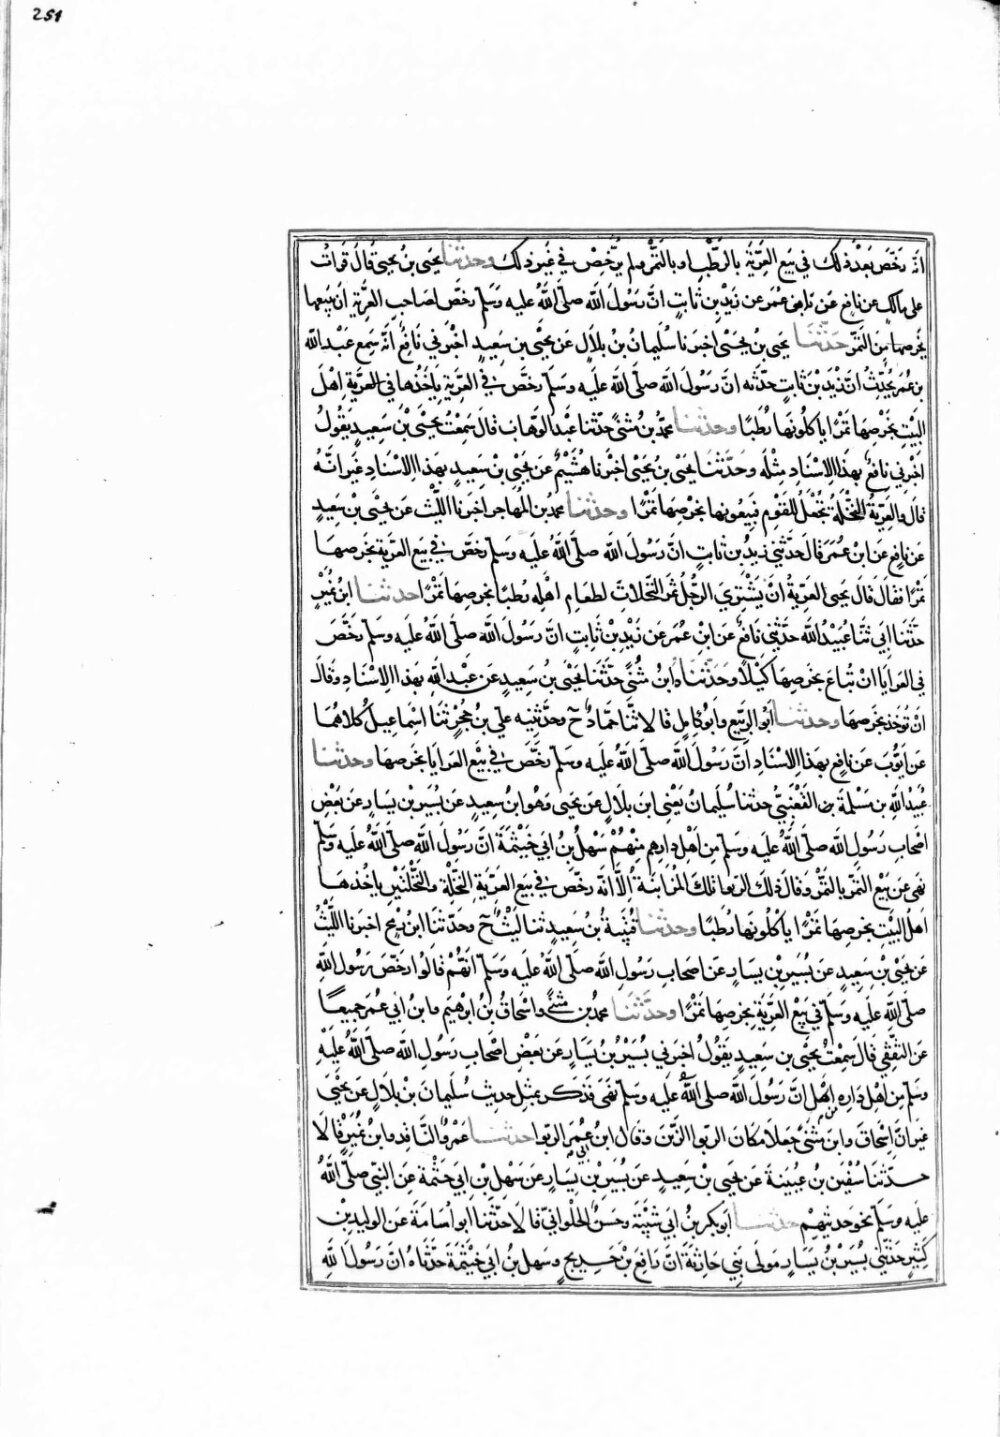 251
انه رخص بعد ذلك في بيع العرية بالرطب او بالتمر ولم يرخص في غير ذلك وحدثنا يحيى بن يحيى قال قرات
على مالك عن نافع عن ابن عمر عن زيد بن ثابت ان رسول الله صلى الله عليه وسلم رخص لصاحب العرية ان يبيعها
بخرصها من التمر حدثنا يحيى بن يحيى اخبرنا سليمان بن بلال عن يحيى بن سعيد اخبرني نافع انه سمع عبد الله
بن عمر يحدث ان زيد بن ثابت حدثه ان رسول الله صلى الله عليه وسلم رخص في العرية ياخذها في العرية اهل
البيت بخرصها تمرا ياكلونها رطبا وحدثنا محمد بن مثنى حدثنا عبد الوهاب قال سمعت يحيى بن سعيد يقول
اخبرني نافع بهذا الاسناد مثله وحدثنا يحيى بن يحيى اخبرنا هشيم عن يحيى بن سعيد بهذا الاسناد غير انه
قال والعرية النخلة تجعل للقوم فيبيعونها بخرصها تمرا وحدثنا محمد بن المهاجر اخبرنا الليث عن يحيى بن سعيد
عن نافع عن ابن عمر قال حدثني زيد بن ثابت ان رسول الله صلى الله عليه وسلم رخص في بيع العرية بخرصها
تمرا فقال قال يحيى العرية ان يشتري الرجل ثمر النخلات لطعام اهله رطبا بخرصها تمرا حدثنا ابن نمير
حدثنا ابي ثنا عبيد الله حدثني نافع عن ابن عمر عن زيد بن ثابت ان رسول الله صلى الله عليه وسلم رخص
في العرايا ان تباع بخرصها كيلا وحدثناه ابن مثنى حدثنا يحيى بن سعيد عن عبد الله بهذا الاسناد وقال
ان توخذ بخرصها وحدثنا ابو الربيع وابو كامل قالا ثنا حماد ح وحدثنيه علي بن حجر ثنا اسماعيل كلاهما
عن ايوب عن نافع بهذا الاسناد ان رسول الله صلى الله عليه وسلم رخص في بيع العرايا بخرصها وحدثنا
عبد الله بن مسلمة بن القعنبي حدثنا سليمان يعني ابن بلال عن يحيى وهو ابن سعيد عن بشير بن يسار عن بعض
اصحاب رسول الله صلى الله عليه وسلم من اهل دارهم منهم سهل بن ابي خيثمة ان رسول الله صلى الله عليه وسلم
نهى عن بيع الثمر بالتمر وقال ذلك الربوا تلك المزابنة الا انه رخص في بيع العرية النخلة والنخلتين ياخذها
اهل البيت بخرصها تمرا ياكلونها رطبا وحدثنا قتيبة بن سعيد ثنا ليث ح وحدثنا ابن رمح اخبرنا الليث
عن يحيى بن سعيد عن بشير بن يسار عن اصحاب رسول الله صلى الله عليه وسلم انهم قالوا رخص رسول الله
صلى الله عليه وسلم في بيع العرية بخرصها تمرا وحدثنا محمد بن مثنى واسحاق بن ابراهيم وابن ابي عمر جميعا
عن الثقفي قال سمعت يحيى بن سعيد يقول اخبرني بشير بن يسار عن بعض اصحاب رسول الله صلى الله عليه
وسلم من اهل داره ان رسول الله صلى الله عليه وسلم نهى فذكر بمثل حديث سليمان بن بلال عن يحيى
غير ان اسحاق وابن مثنى جعلا مكان الربوا الزبن وقال ابن ابي عمر الربوا حدثنا عمرو الناقد وابن نمير قالا
حدثنا سفين بن عيينة عن يحيى بن سعيد عن بشير بن يسار عن سهل بن ابي حثمة عن النبي صلى الله
عليه وسلم نحو حديثهم حدثنا ابو بكر بن ابي شيبة وحسن الحلواني قالا حدثنا ابو اسامة عن الوليد بن
كثير حدثني بشير بن يسار مولى بني حارثة ان رافع بن خديج وسهل بن ابي خيثمة حدثاه ان رسول الله